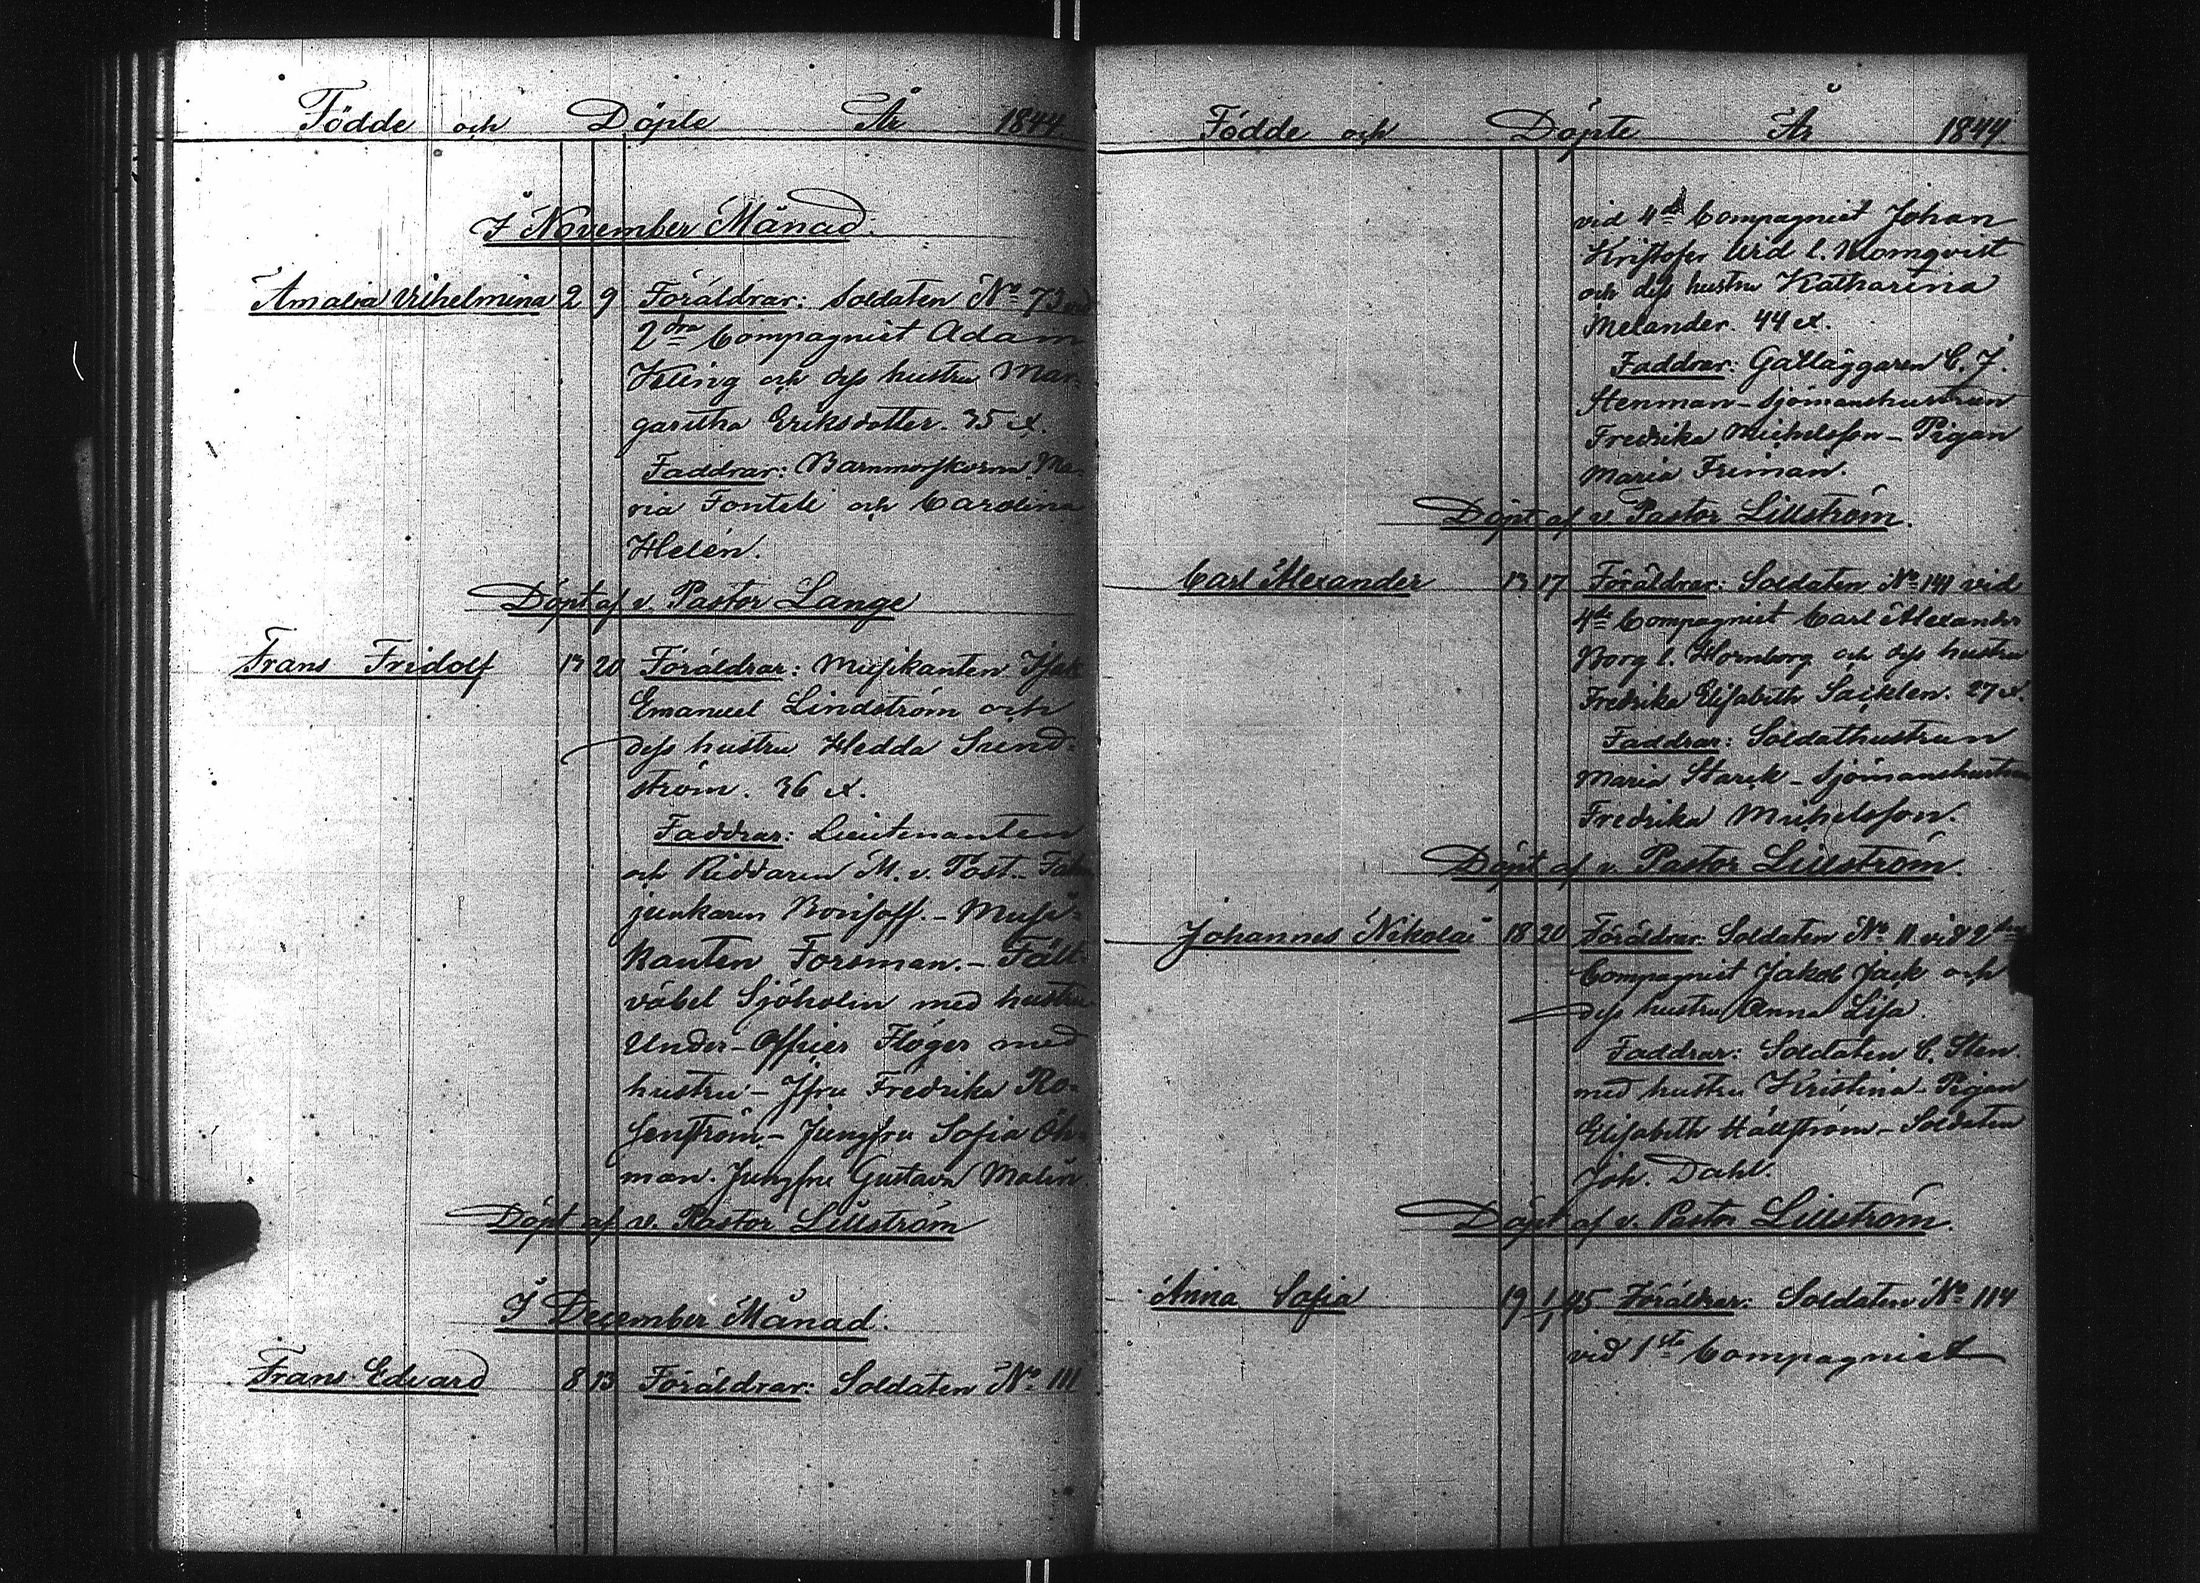 Födde och Döpte År 1844
I November Månad.
Amalia Vilhelmina 2 9 Föräldrar: Soldaten No 73 vid
2dra Compagniet Adam
och dess hustru Mar-
garetha Eriksdotter. 35 år.
Faddrar: Barnmorskorna Ma-
ria Fontell och Carolina
Helén.
Döpt af v. Pastor Lange
Frans Fridolf 13 20 Föräldrar: Musikanten Isak
Emanuel Lindström och
dess hustru Hedda Sund-
ström. 36 år.
Faddrar: Lieutenanten
och Riddaren M. v. Post. - Fan-
junkaren Borisoff. - Musi-
kanten Forsman. - Fält-
väbel Sjöholm med hustru
Under-Officer Flöger med
hustru - Jfru Fredrika Ro-
senström - Jungfru Sofia Öh-
man. Jungfru Gustava Malin
Döpt af v. Pastor Lillström
I December Månad.
Frans Edvard 8 13 Föräldrar: Soldaten No 111
Födde och Döpte År 1844
vid 4de Compagniet Johan
Kristofer l. Blomqvist
och dess hustru Katharina
Melander. 44 år.
Faddrar: Gatläggaren C. J.
Stenman - Sjömanshustrun
Fredrika Michelsson - Pigan
Maria Friman.
Döpt af v. Pastor Lillström.
Carl Alexander 13 17 Föräldrar: Soldaten No 141 vid
4de Compagniet Carl Alexander
Borg l. Hornborg och dess hustru
Fredrika Elisabeth Sacklen. 27 år.
Faddrar: Soldathustrun
Maria Starck - Sjömanshustrun
Fredrika Michelsson.
Döpt af v. Pastor Lillström.
Johannes Nikolai 18 20 Föräldrar: Soldaten No 11 vid 2dra
Compagniet Jakob Jack och
dess hustru Anna Lisa.
Faddrar: Soldaten C. Sten.
med hustru Kristina - Pigan
Elisabeth Hällström - Soldaten
Joh. Dahl.
Döpt af v. Pastor Lillström.
Anna Sofia 19 1/1 45 Föräldrar: Soldaten No 114
vid 1sta Compagniet